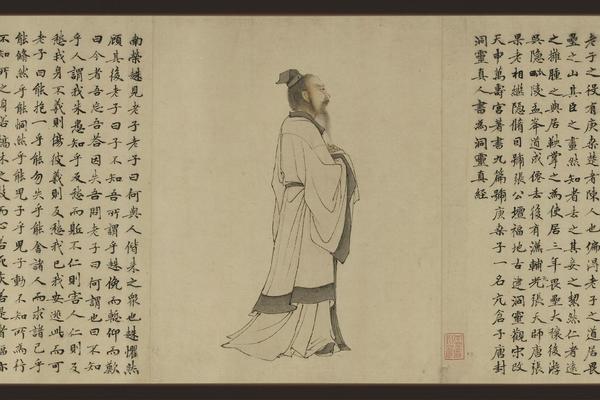 老子之役有庚桑楚者陳人也偏得老子之道居畏
壘之山其臣之畫然知者去之其妾之挈然仁者遠
之擁腫之與居鞅掌之為使居三年畏壘大穰後游
吳隱毗陵孟峯道成僊去後有漢輔光張天師唐張
果老相繼隱脩目號張公壇福地古建洞靈觀宋改
天申萬壽宮著書九篇號庚桑子一名亢倉子唐封
洞靈真人書為洞靈真經
南榮趎見老子老子曰何與人偕來之衆也趎懼然
顧其後老子曰子不知吾所謂乎趎俛而慙仰而歎
曰今者吾忘吾荅因失吾問老子曰何謂也曰不知
乎人謂我朱愚知乎反愁而軀不仁則害人仁則反
愁我身不義則傷彼義則反愁我已我安逃此而可
老子曰能抱一乎能勿失乎能舍諸人而求諸己乎
能翛然乎能侗然乎能兒子乎兒子動不知所為行
不知所之身若槁木之枝而心若死灰若是者禍亦